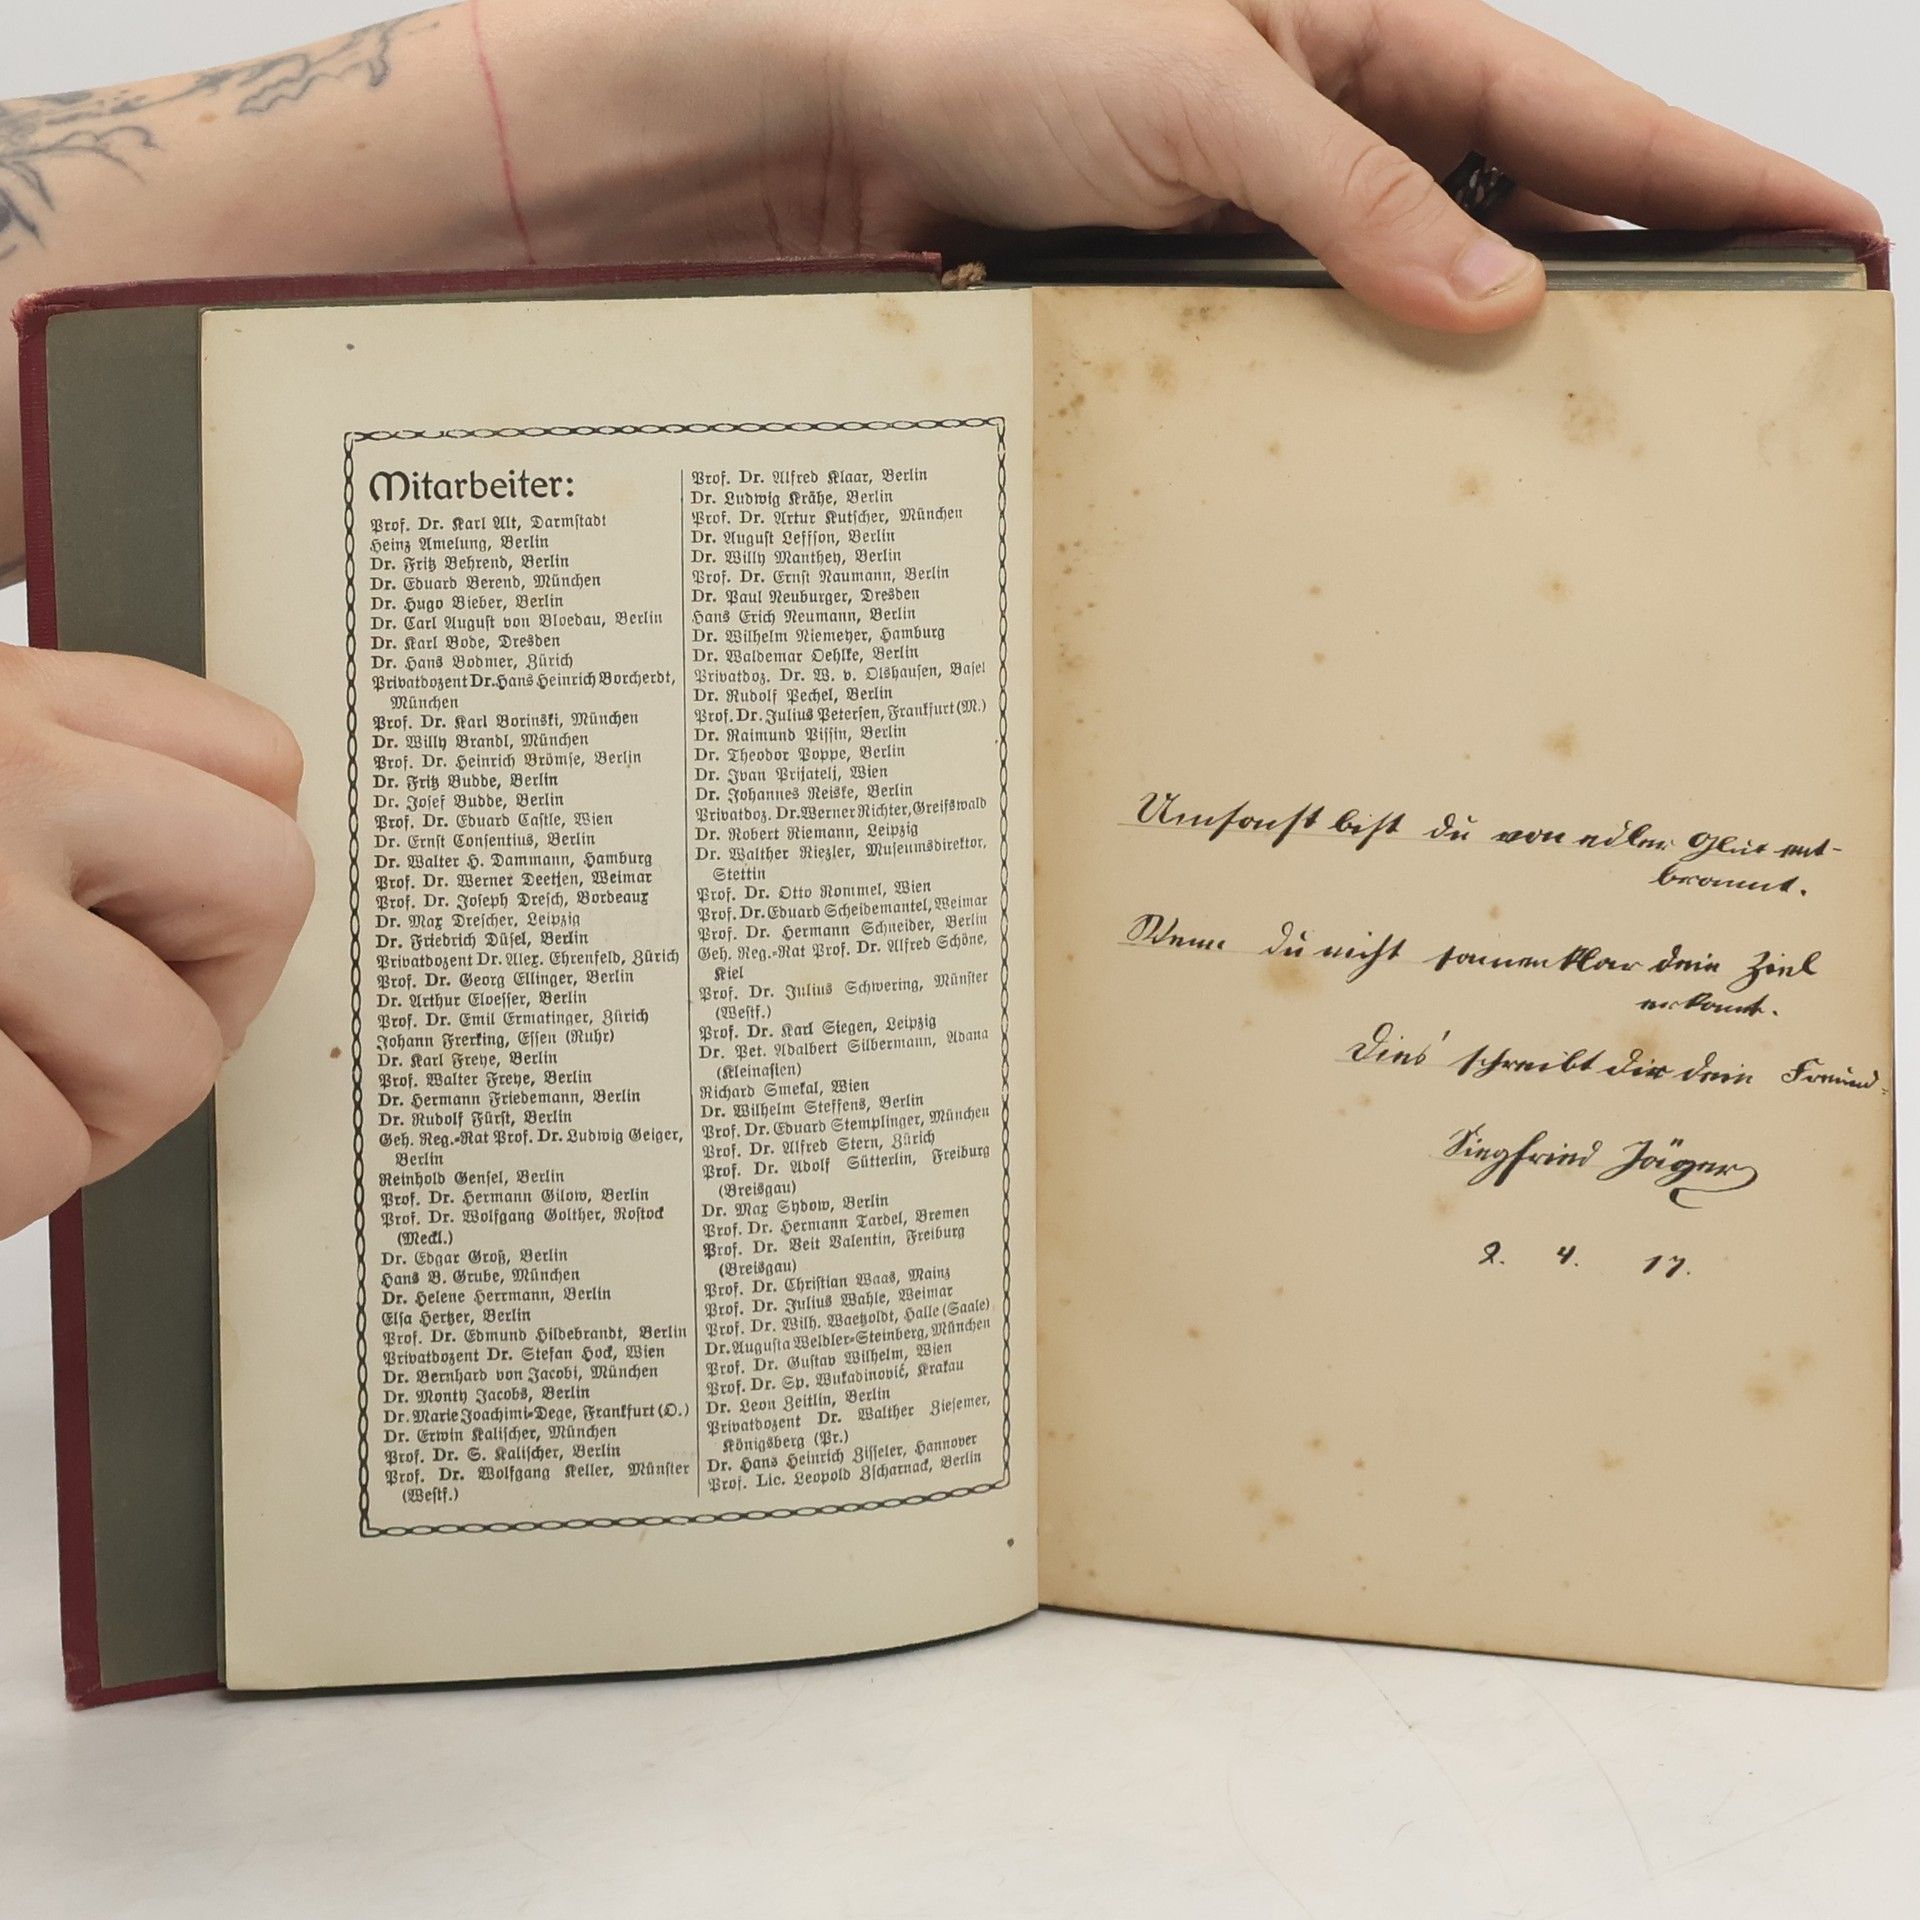 Mitarbeiter:
Prof. Dr. Karl Alt, Darmstadt
Heinz Amelung, Berlin
Dr. Fritz Behrend, Berlin
Dr. Eduard Berend, München
Dr. Hugo Bieber, Berlin
Dr. Carl August von Bloedau, Berlin
Dr. Karl Bode, Dresden
Dr. Hans Bodmer, Zürich
Privatdozent Dr. Hans Heinrich Borcherdt,
München
Prof. Dr. Karl Borinski, München
Dr. Willy Brandl, München
Prof. Dr. Heinrich Brömse, Berlin
Dr. Fritz Budde, Berlin
Dr. Josef Budde, Berlin
Prof. Dr. Eduard Castle, Wien
Dr. Ernst Consentius, Berlin
Dr. Walter H. Dammann, Hamburg
Prof. Dr. Werner Deetjen, Weimar
Prof. Dr. Joseph Dresch, Bordeaux
Dr. Max Drescher, Leipzig
Dr. Friedrich Düsel, Berlin
Privatdozent Dr. Alex. Ehrenfeld, Zürich
Prof. Dr. Georg Ellinger, Berlin
Dr. Arthur Eloesser, Berlin
Prof. Dr. Emil Ermatinger, Zürich
Johann Frerking, Essen (Ruhr)
Dr. Karl Freye, Berlin
Prof. Walter Freye, Berlin
Dr. Hermann Friedemann, Berlin
Dr. Rudolf Fürst, Berlin
Geh. Reg.-Rat Prof. Dr. Ludwig Geiger,
Berlin
Reinhold Gensel, Berlin
Prof. Dr. Hermann Gilow, Berlin
Prof. Dr. Wolfgang Golther, Rostock
(Meckl.)
Dr. Edgar Groß, Berlin
Hans B. Grube, München
Dr. Helene Herrmann, Berlin
Elsa Hertzer, Berlin
Prof. Dr. Edmund Hildebrandt, Berlin
Privatdozent Dr. Stefan Hock, Wien
Dr. Bernhard von Jacobi, München
Dr. Monty Jacobs, Berlin
Dr. Marie Joachimi-Dege, Frankfurt (O.)
Dr. Erwin Kalischer, München
Prof. Dr. S. Kalischer, Berlin
Prof. Dr. Wolfgang Keller, Münster
(Westf.)
Prof. Dr. Alfred Klaar, Berlin
Dr. Ludwig Krähe, Berlin
Prof. Dr. Artur Kutscher, München
Dr. August Leffson, Berlin
Dr. Willy Manthey, Berlin
Prof. Dr. Ernst Naumann, Berlin
Dr. Paul Neuburger, Dresden
Hans Erich Neumann, Berlin
Dr. Wilhelm Niemeyer, Hamburg
Dr. Waldemar Oehlke, Berlin
Privatdoz. Dr. W. v. Olshausen, Basel
Dr. Rudolf Pechel, Berlin
Prof. Dr. Julius Petersen, Frankfurt (M.)
Dr. Raimund Pissin, Berlin
Dr. Theodor Poppe, Berlin
Dr. Ivan Prijatelj, Wien
Dr. Johannes Reiske, Berlin
Privatdoz. Dr. Werner Richter, Greifswald
Dr. Robert Riemann, Leipzig
Dr. Walther Riezler, Museumsdirektor,
Stettin
Prof. Dr. Otto Rommel, Wien
Prof. Dr. Eduard Scheidemantel, Weimar
Prof. Dr. Hermann Schneider, Berlin
Geh. Reg.-Rat Prof. Dr. Alfred Schöne,
Kiel
Prof. Dr. Julius Schwering, Münster
(Westf.)
Prof. Dr. Karl Siegen, Leipzig
Dr. Pet. Adalbert Silbermann, Adana
(Kleinasien)
Richard Smekal, Wien
Dr. Wilhelm Steffens, Berlin
Prof. Dr. Eduard Stemplinger, München
Prof. Dr. Alfred Stern, Zürich
Prof. Dr. Adolf Sütterlin, Freiburg
(Breisgau)
Dr. Max Sydow, Berlin
Prof. Dr. Hermann Tardel, Bremen
Prof. Dr. Veit Valentin, Freiburg
(Breisgau)
Prof. Dr. Christian Waas, Mainz
Prof. Dr. Julius Wahle, Weimar
Prof. Dr. Wilh. Waetzoldt, Halle (Saale)
Dr. Augusta Weldler-Steinberg, München
Prof. Dr. Gustav Wilhelm, Wien
Prof. Dr. Sp. Wukadinović, Krakau
Dr. Leon Zeitlin, Berlin
Privatdozent Dr. Walther Ziesemer,
Königsberg (Pr.)
Dr. Hans Heinrich Zisseler, Hannover
Prof. Lic. Leopold Zscharnack, Berlin
Umsonst bist du von edler Glut ent-
brannt.
Wenn du nicht sonnenklar dein Ziel
erkannt.
Dies' schreibt dir dein Freund
Siegfried Jäger
2. 4. 17.